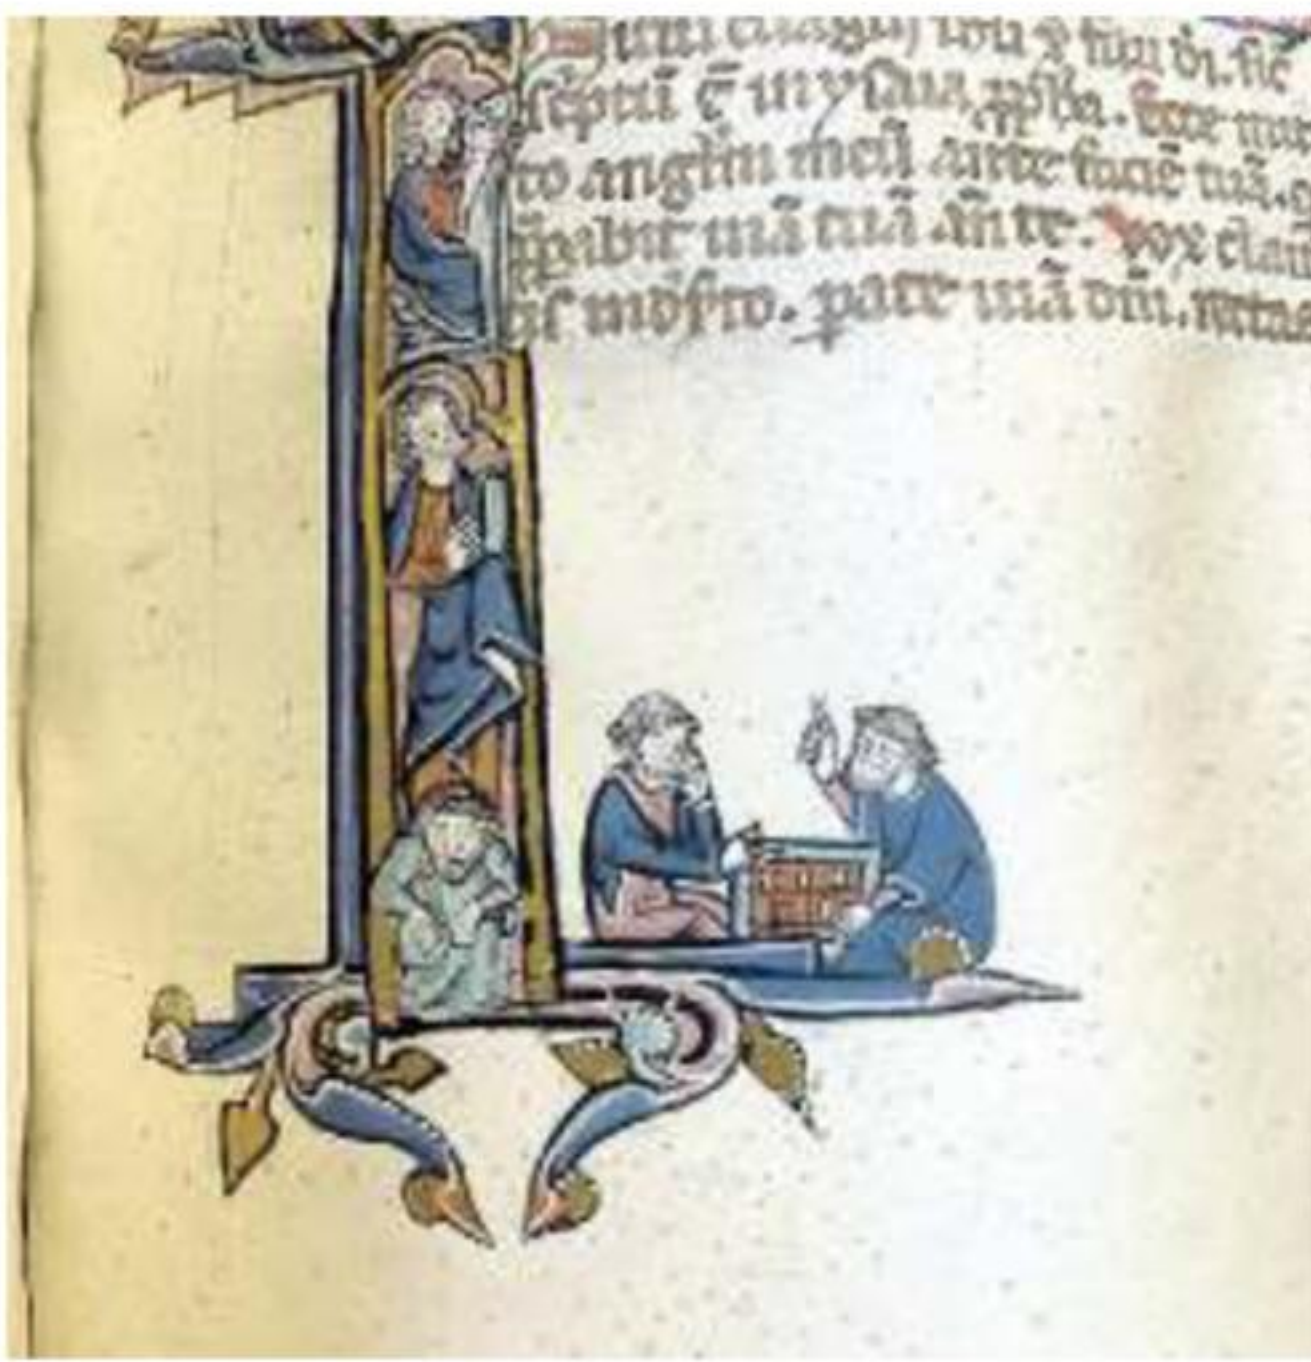 Initiū euāgɫij ihū x̄ filii di. sic̄
scͥptū ē in ysaia ꝓph̄a. Ecce mit
to angɫm meū ante faciē tuā. q
p̄parabit uiā tuā an̄ te. Vox clam
is in des̾to. parate uiā dm̄. rectas